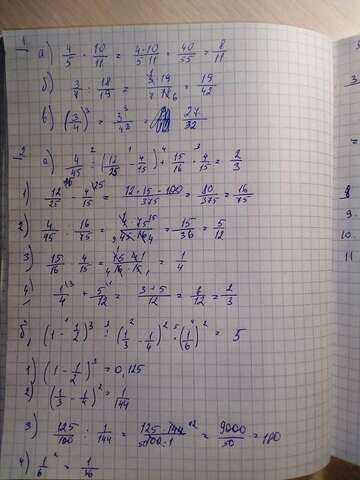 1 а) 4/5 · 10/11 = 4·10/5·11 = 40/55 = 8/11
б) 3/7 : 18/19 = 3·19/7·18 6 = 19/42
в) (3/4)³ = 3³/4³ = 27/32
2 а) 4/45 : (12/25 - 4/15) + 15/16 · 4/15 = 2/3
1) 12/25 - 4/15 = 12·15-100/375 = 80/375 = 16/75
2) 4/45 : 16/75 = 4·75/45·16 = 15/36 = 5/12
3) 15/16 · 4/15 = 15·4/16·15 = 1/4
4) 1/4 + 5/12 = 3+5/12 = 8/12 = 2/3
б) (1 - 1/2)³ : (1/3 - 1/4)² · (1/6)² = 5
1) (1 - 1/2)³ = 0,125
2) (1/3 - 1/4)² = 1/144
3) 125/100 : 1/144 = 125·144/100·1 = 9000/50 = 180
4) 1/6² = 1/36
3
8
9
10
11